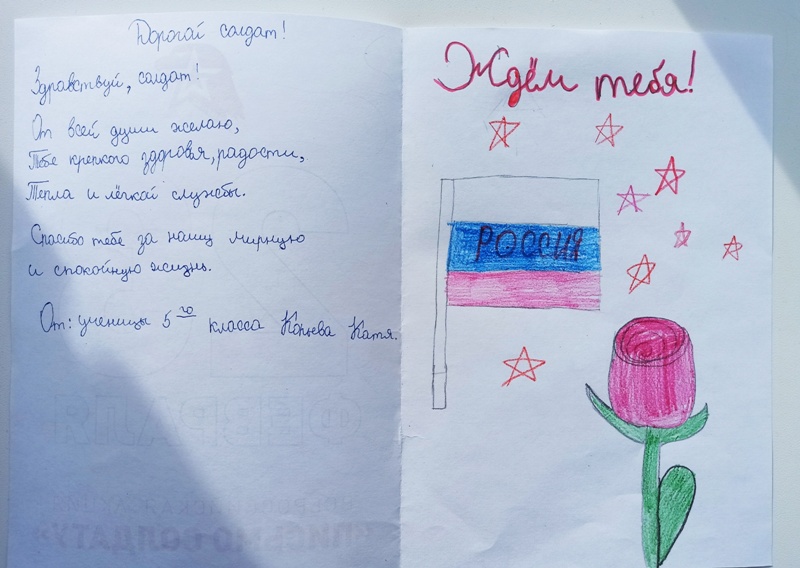 Дорогой солдат!
Здравствуй, солдат!
От всей души желаю,
Тебе крепкого здоровья, радости,
Тепла и лёгкой службы.
Спасибо тебе за нашу мирную
и спокойную жизнь.
От: ученицы 5го класса Катя.
ФЕВРАЛЯ
«ПИСЬМО СОЛДАТУ»
Ждём тебя!
РОССИЯ